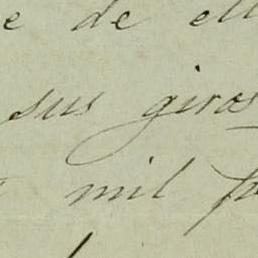 e de ell
sus giros
mil p